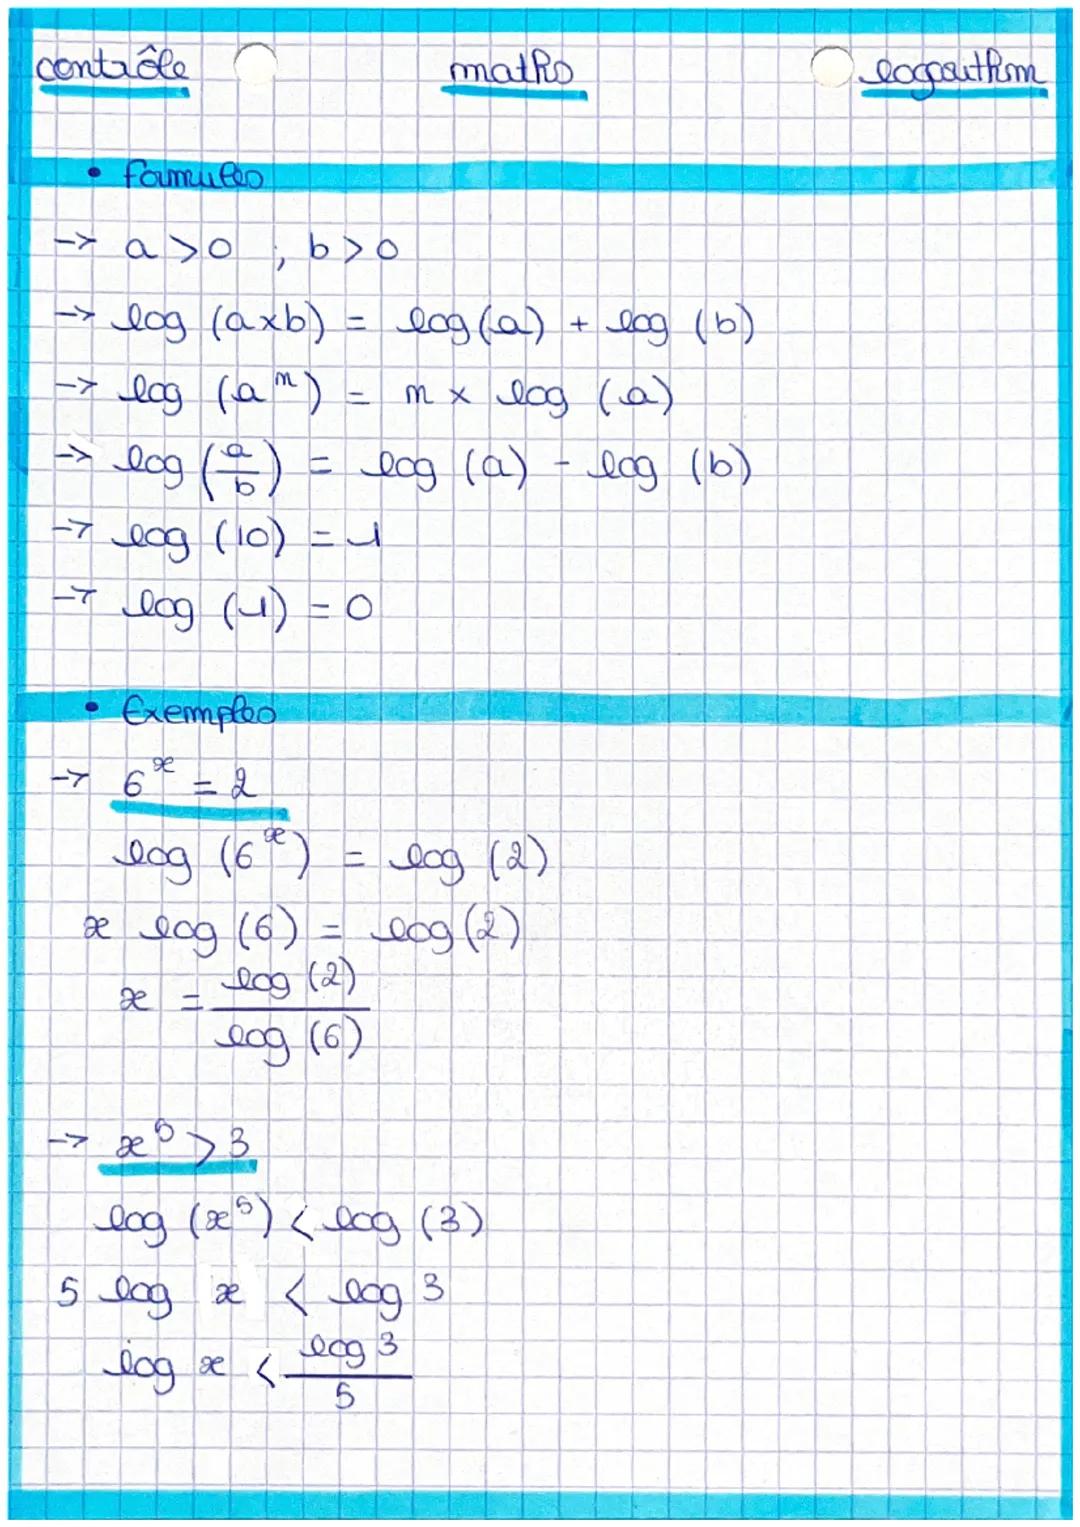 contrôle maths logarithm
• formules
-> a > 0 ; b > 0
-> log (a×b) = log (a) + log (b)
-> log (aⁿ) = n × log (a)
-> log (a/b) = log (a) - log (b)
-> log (10) = 1
-> log (1) = 0
• Exemples
-> 6ˣ = 2
log (6ˣ) = log (2)
x log (6) = log (2)
x = log (2) / log (6)
-> x⁵ > 3
log (x⁵) < log (3)
5 log x < log 3
log x < log 3 / 5